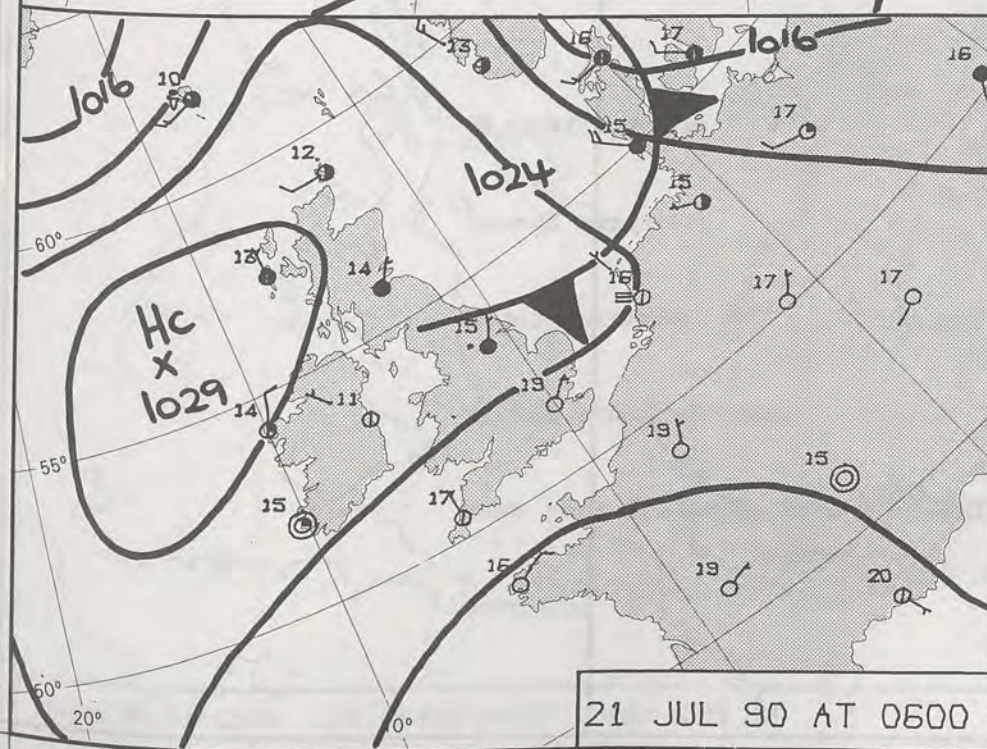 16
17
13
1016
16
1016
10
17
15
12
1024
15
60°
13
14
16
17
17
Hc
x
1029
15
14
11
19
19
55°
15
15
17
16
19
20
50°
20°
10°
21 JUL 90 AT 0600